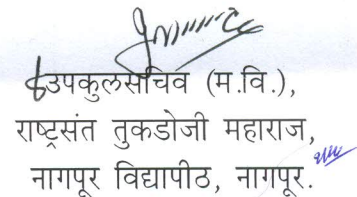 उपकुलसचिव (म.वि.),
राष्ट्रसंत तुकडोजी महाराज,
नागपूर विद्यापीठ, नागपूर.